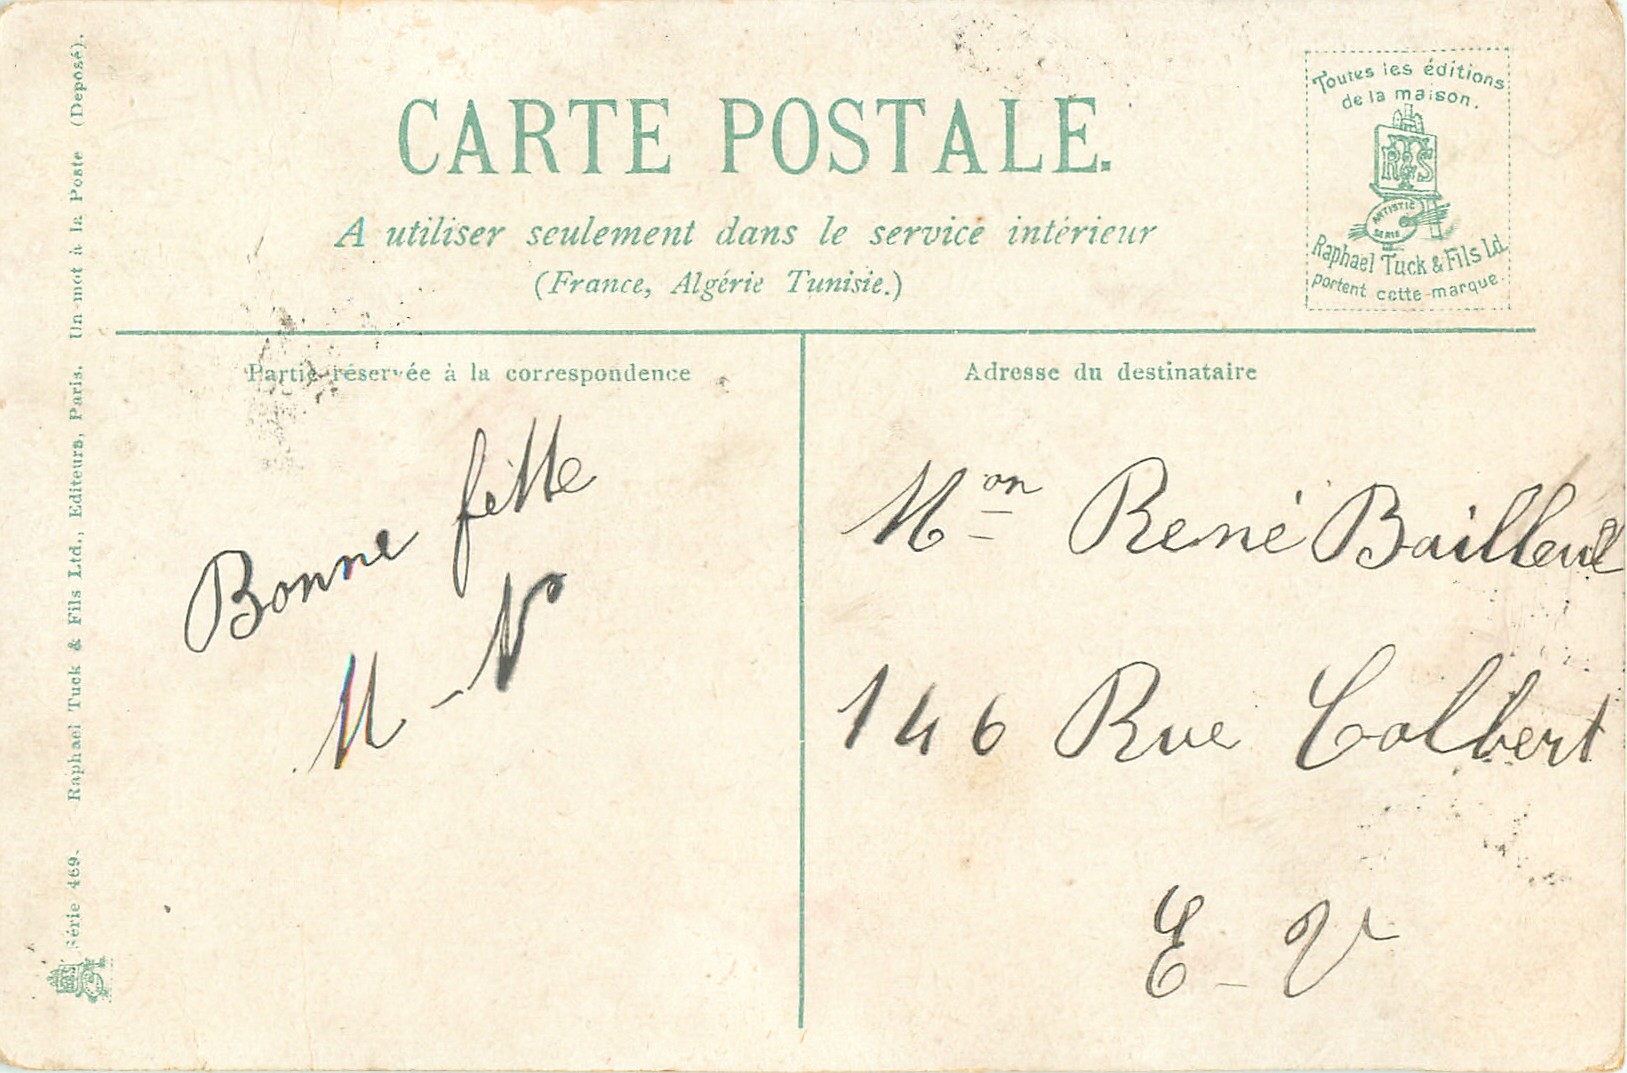 CARTE POSTALE.
A utiliser seulement dans le service intérieur
(France, Algérie Tunisie.)
Toutes les éditions
de la maison.
RTS
ARTISTIC
SERIE
Raphael Tuck & Fils Ld.
portent cette marque.
Série 469. Raphael Tuck & Fils Ltd., Editeurs, Paris. Un mot à la Poste (Deposé).
Partie réservée à la correspondence
Bonne fitte
M - V
Adresse du destinataire
Mon René Bailleul
146 Rue Colbert
E - V